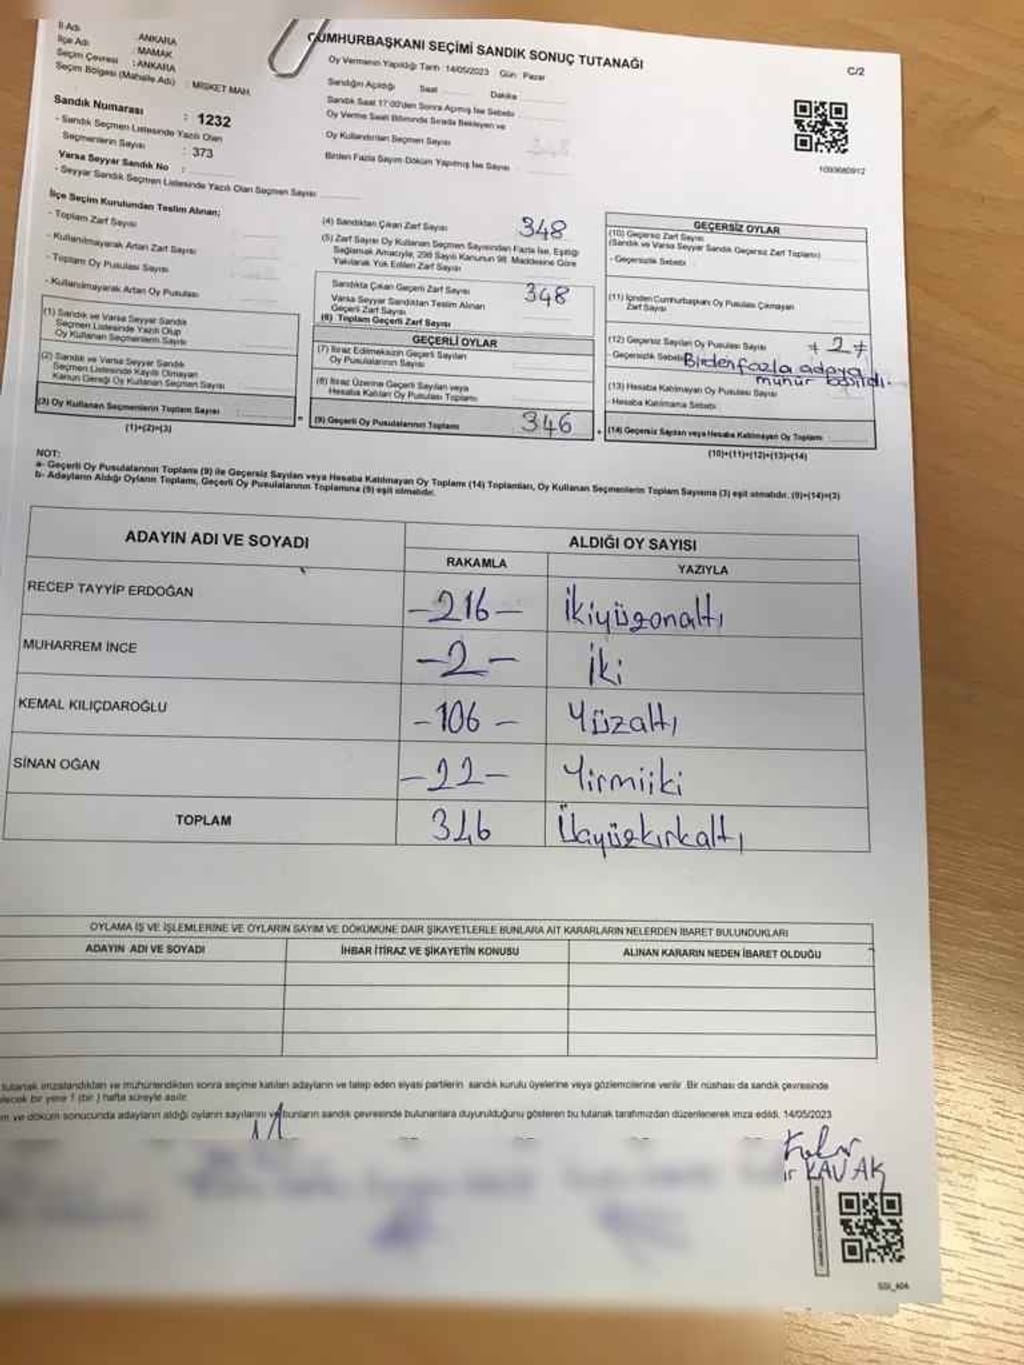 İl Adı : ANKARA
İlçe Adı : MAMAK
Seçim Çevresi : ANKARA
Seçim Bölgesi (Mahalle Adı) : MİSKET MAH.
CUMHURBAŞKANI SEÇİMİ SANDIK SONUÇ TUTANAĞI
C/2
Oy Vermenin Yapıldığı Tarih :14/05/2023 Gün : Pazar
Sandığın Açıldığı Saat Dakika
Sandık Saat 17:00'den Sonra Açılmış İse Sebebi
Oy Verme Saati Bitiminde Sırada Bekleyen ve
Oy Kullandırılan Seçmen Sayısı
Birden Fazla Sayım Döküm Yapılmış İse Sayısı
Sandık Numarası : 1232
- Sandık Seçmen Listesinde Yazılı Olan
Seçmenlerin Sayısı : 373
Varsa Seyyar Sandık No :
- Seyyar Sandık Seçmen Listesinde Yazılı Olan Seçmen Sayısı
İlçe Seçim Kurulundan Teslim Alınan;
- Toplam Zarf Sayısı
- Kullanılmayarak Artan Zarf Sayısı
- Toplam Oy Pusulası Sayısı
- Kullanılmayarak Artan Oy Pusulası
(1) Sandık ve Varsa Seyyar Sandık
Seçmen Listesinde Yazılı Olup
Oy Kullanan Seçmenlerin Sayısı
(2) Sandık ve Varsa Seyyar Sandık
Seçmen Listesinde Kayıtlı Olmayan
Kanun Gereği Oy Kullanan Seçmen Sayısı
(3) Oy Kullanan Seçmenlerin Toplam Sayısı
(1)+(2)=(3)
(4) Sandıktan Çıkan Zarf Sayısı 348
(5) Zarf Sayısı Oy Kullanan Seçmen Sayısından Fazla İse, Eşitliği
Sağlamak Amacıyla, 298 Sayılı Kanunun 98. Maddesine Göre
Yakılarak Yok Edilen Zarf Sayısı
Sandıkta Çıkan Geçerli Zarf Sayısı 348
Varsa Seyyar Sandıktan Teslim Alınan
Geçerli Zarf Sayısı
(6) Toplam Geçerli Zarf Sayısı
GEÇERLİ OYLAR
(7) İtiraz Edilmeksizin Geçerli Sayılan
Oy Pusulalarının Sayısı
(8) İtiraz Üzerine Geçerli Sayılan veya
Hesaba Katılan Oy Pusulası Toplamı
(9) Geçerli Oy Pusulalarının Toplamı 346
GEÇERSİZ OYLAR
(10) Geçersiz Zarf Sayısı
(Sandık ve Varsa Seyyar Sandık Geçersiz Zarf Toplamı)
- Geçersizlik Sebebi
(11) İçinden Cumhurbaşkanı Oy Pusulası Çıkmayan
Zarf Sayısı
(12) Geçersiz Sayılan Oy Pusulası Sayısı 2
- Geçersizlik Sebebi Birden fazla adaya
mühür basıldı.
(13) Hesaba Katılmayan Oy Pusulası Sayısı
- Hesaba Katılmama Sebebi
(14) Geçersiz Sayılan veya Hesaba Katılmayan Oy Toplamı
(10)+(11)+(12)+(13)=(14)
NOT:
a- Geçerli Oy Pusulalarının Toplamı (9) ile Geçersiz Sayılan veya Hesaba Katılmayan Oy Toplamı (14) Toplamları, Oy Kullanan Seçmenlerin Toplam Sayısına (3) eşit olmalıdır. (9)+(14)=(3)
b- Adayların Aldığı Oyların Toplamı, Geçerli Oy Pusulalarının Toplamına (9) eşit olmalıdır.
ADAYIN ADI VE SOYADI
ALDIĞI OY SAYISI
RAKAMLA YAZIYLA
RECEP TAYYİP ERDOĞAN -216- İkiyüzonaltı
MUHARREM İNCE -2- İki
KEMAL KILIÇDAROĞLU -106- Yüzaltı
SİNAN OĞAN -22- Yirmiiki
TOPLAM 346 Üçyüzkırkaltı
OYLAMA İŞ VE İŞLEMLERİNE VE OYLARIN SAYIM VE DÖKÜMÜNE DAİR ŞİKAYETLERLE BUNLARA AİT KARARLARIN NELERDEN İBARET BULUNDUKLARI
ADAYIN ADI VE SOYADI İHBAR İTİRAZ VE ŞİKAYETİN KONUSU ALINAN KARARIN NEDEN İBARET OLDUĞU
tutanak imzalandıktan ve mühürlendikten sonra seçime katılan adayların ve talep eden siyasi partilerin sandık kurulu üyelerine veya gözlemcilerine verilir. Bir nüshası da sandık çevresinde
lecek bir yere 1 (bir ) hafta süreyle asılır.
m ve döküm sonucunda adayların aldığı oyların sayılarını ve bunların sandık çevresinde bulunanlara duyurulduğunu gösteren bu tutanak tarafımızdan düzenlenerek imza edildi. 14/05/2023
KAVAK